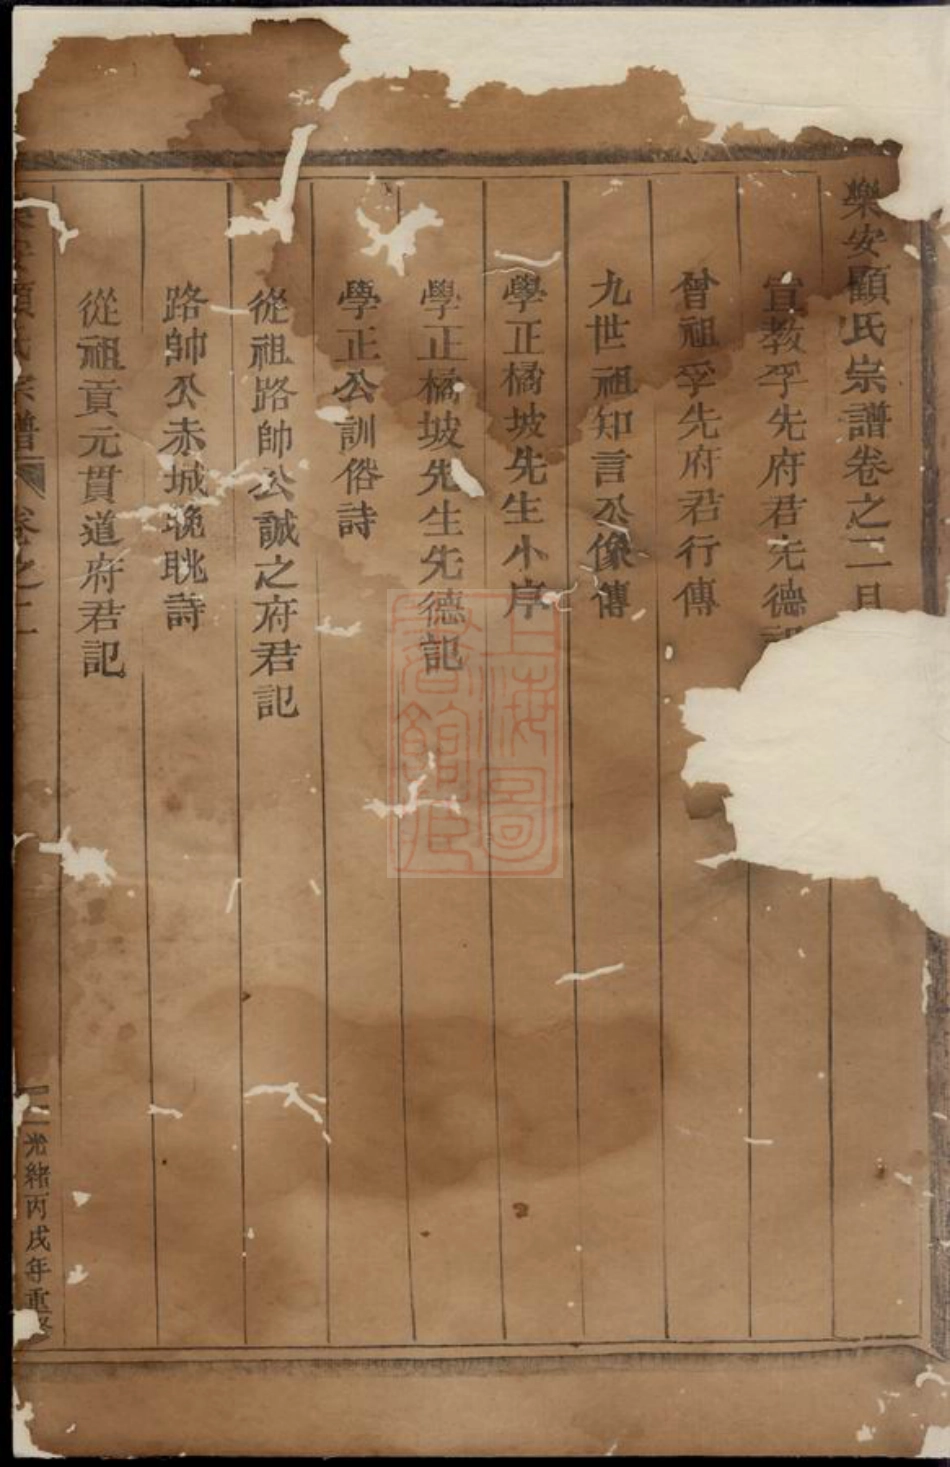 樂安顧氏宗譜卷之二目
宣教孚先府君先德記
曾祖孚先府君行傳
九世祖知言公像傳
學正橘坡先生小序
學正橘坡先生先德記
學正公訓俗詩
從祖路帥公誠之府君記
路帥公赤城晚眺詩
從祖貢元貫道府君記
顧氏宗譜 卷之二
光緒丙戌年重修
上海圖書館藏